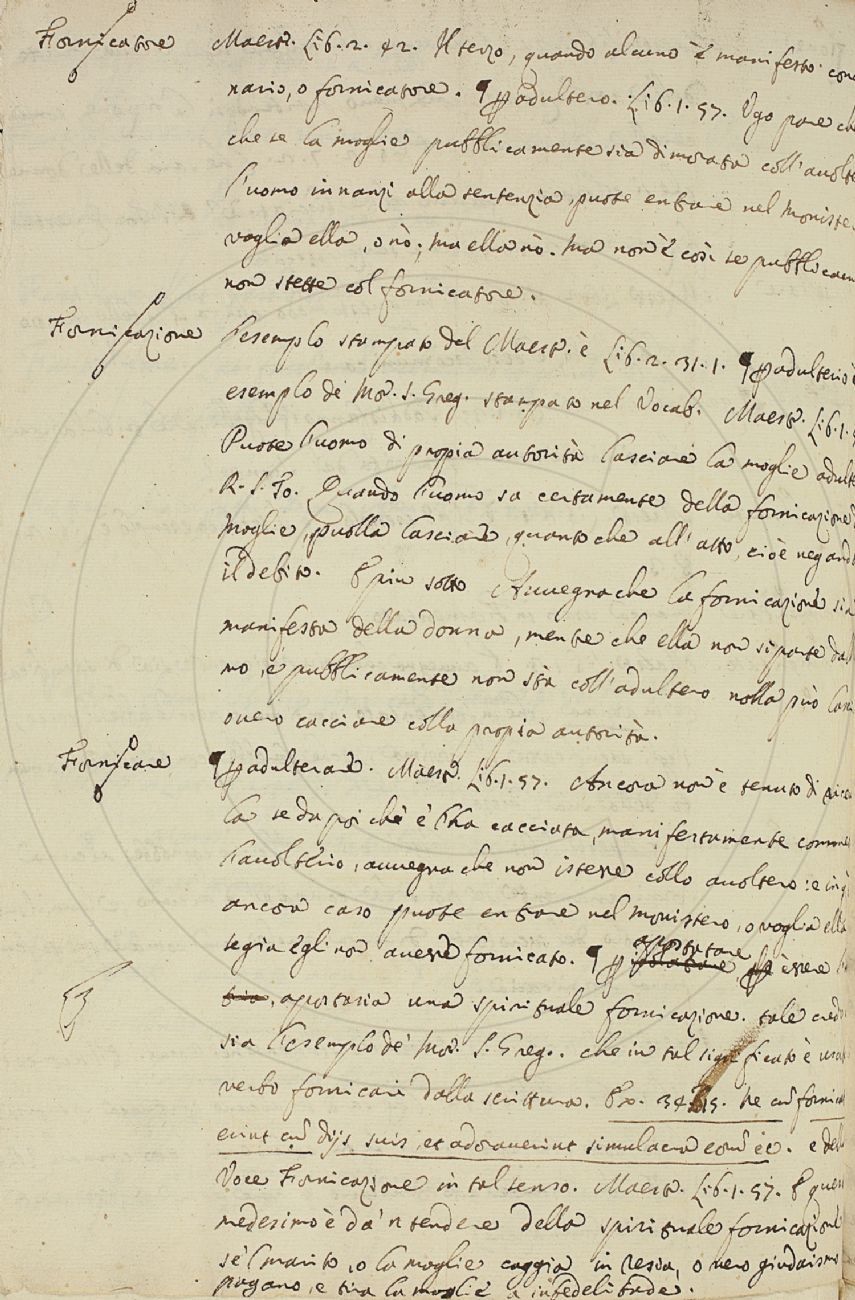 Fornicatore Maestr. Lib. 2. 42. Il terzo, quando alcuno è manifesto con
nario, o fornicatore. ¶ p adultero. Lib. 1. 57. Ugo pare ch
che se la moglie pubblicamente sia dimorata coll'avolte
l'uomo innanzi alla sentenzia, puote entrare nel Moniste
voglia ella, o nò; ma ella nò. Ma non è così se pubblicam
non stette col fornicatore.
Fornicazione L'esemplo stampato del Maestr. è Lib. 2. 31. 1. ¶ p adulterio è
esemplo de' Mor. S. Greg. stampato nel Vocab. Maestr. Lib. 1. 5
Puote l'uomo di propia autorità lasciare la moglie adult
R. S. To. Quando l'uomo sa certamente della fornicazione
Moglie, puolla lasciare, quanto che all'atto, cioè negand
il debito. E più sotto Avvegnache la fornicazione sia
manifesta della donna, mentre che ella non si parte dal
mo, e pubblicamente non stà coll'adultero nolla può lasc
overo cacciare colla propia autorità.
Fornicare ¶ p adulterare. Maestr. Lib. 1. 57. Ancora non è tenuto di rice
la se da poi che è l'ha cacciata, manifestamente comme
l'avolterio, avvegna che non istesse collo avoltero: e in
ancora caso puote entrare nel monistero, o voglia ella
segia egli non avesse fornicato. ¶ p apostatare essere
apostasia una spirituale fornicazione. tale cred
sia l'esemplo de' Mor. S. Greg. che in tal significato è usa
verbo fornicari dalla scrittura. Ex. 34. 15. ne cū fornica
erint cū dijs suis, et adoraverint simulacra eorū &c. e del
Voce Fornicazione in tal senso. Maestr. Lib. 1. 57. E ques
medesimo è da 'ntendere della spirituale fornicazione
se 'l marito, o la moglie caggia in resia, o vero giudaismo
pagano, e tira la moglie a infedelitade.